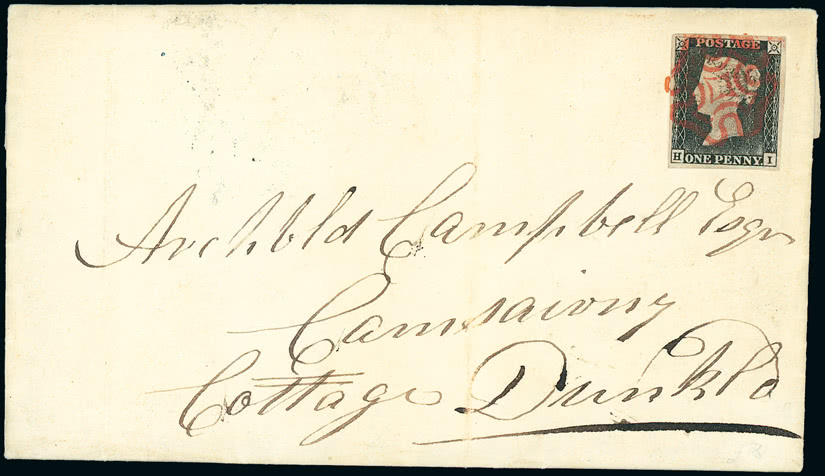 POSTAGE
ONE PENNY
H I
Archbld Campbell Esqr
Cottage Dunkld